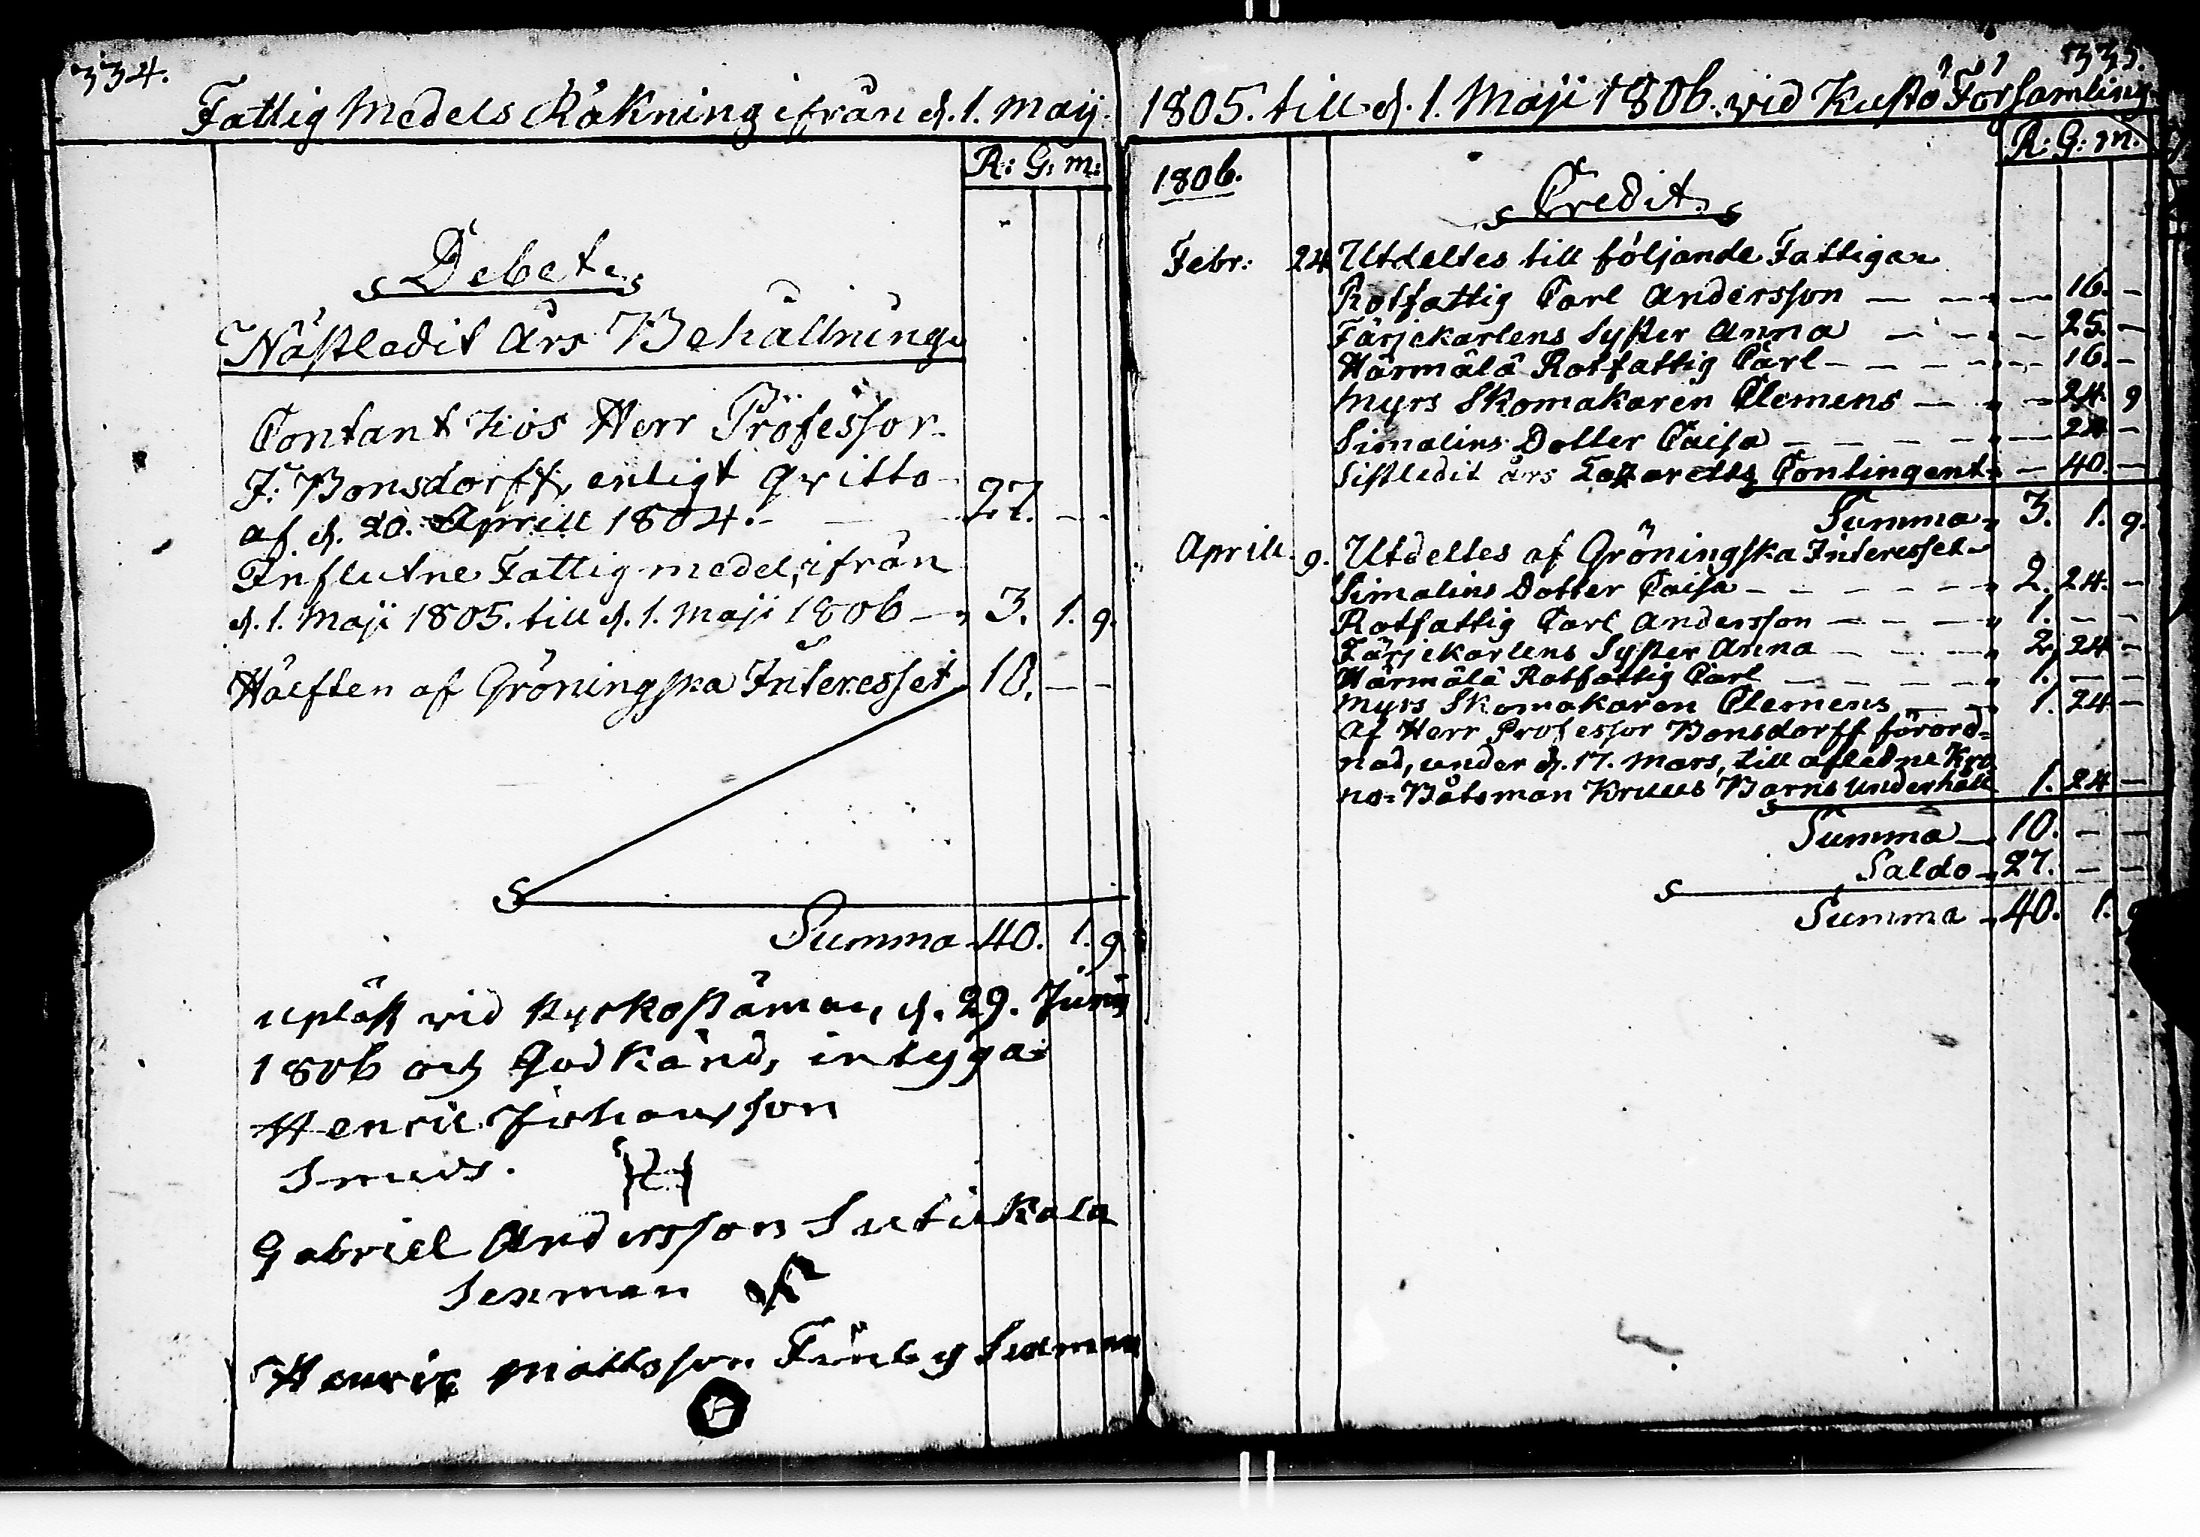 334.
Fattig Medels Räkning ifrån d. 1. Maij.
R: G: m:
Debet.
Nästledit Års Behållning.
Contant hos Herr Professor
J: Bonsdorff, enligt qvitto
af d. 20. Aprill 1804. - — — 27. — -
Influtne Fattig medel, ifrån
d. 1. Maji 1805. till d. 1. Maji 1806 — 3. 1. 9.
Hälften af Gröningska Interesset 10. — —
Summa 40. 1. 9
upläst vid Kyrkostäman, d. 29. Junij
1806 och Godkänd, intyga
Henric Johansson
Gabriel Andersson Sutukala
Sexman
Henric Mattsson Sexman
335.
1805. till d. 1. Maji 1806. vid Kustö Församling
R: G: m.
1806.
Credit.
Febr: 24 Utdeltes till följande Fattiga
Rotfattig Carl Andersson — — — 16. —
Färjekarlens Syster Anna — — — 25. —
Härmälä Rotfattig Carl — — — 16. —
Myrs Skomakaren Clemens — — 24 9
Simalins Dotter Caisa — — — — 24 —
Sistledit års Lazaretts Contingent — 40. —
Summa 3. 1. 9.
Aprill. 9. Utdeltes af Gröningska Interesset
Simalins Dotter Caisa — — — — 2. 24. —
Rotfattig Carl Andersson — — — 1. — —
Färjekarlens Syster Anna — — — 2. 24 —
Härmälä Rotfattig Carl — — — — 1. — —
Myrs Skomakaren Clemens — — 1. 24 —
Af Herr Professor Bonsdorff förord=
nad, under d. 17. Mars, till afledne Kro
no=Båtsman Kruus Barns underhåll 1. 24 —
Summa — 10. — —
Saldo 27. — —
Summa 40. 1. 9